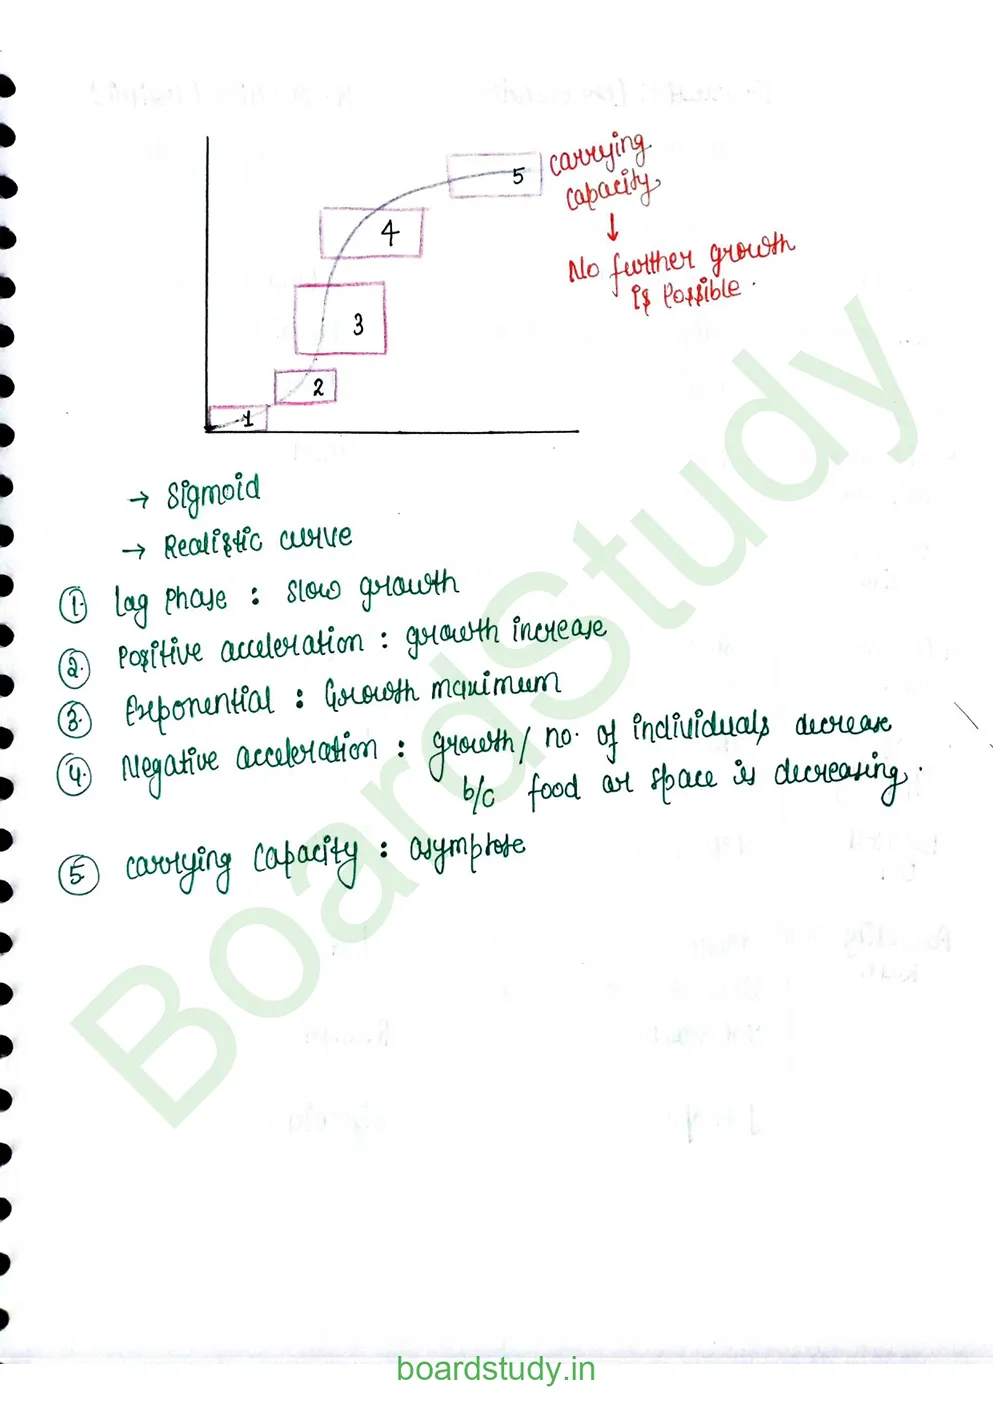 5
carrying
capacity
↓
No further growth
is possible.
4
3
2
1
→ Sigmoid
→ Realistic curve
① Lag phase : slow growth
② Positive acceleration : growth increase
③ Exponential : Growth maximum
④ Negative acceleration : growth / no. of individuals decrease
b/c food or space is decreasing.
⑤ Carrying capacity : asymptote
BoardStudy
boardstudy.in